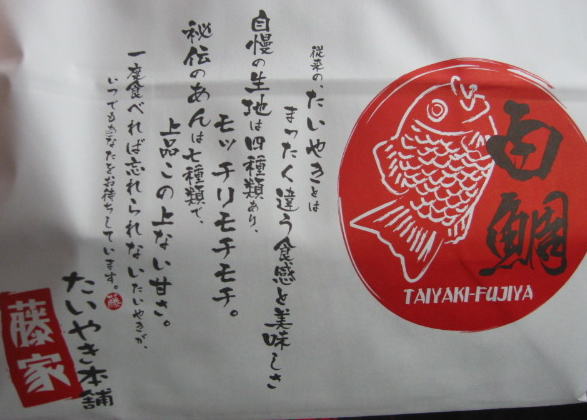 従来の、たいやきとは
まったく違う食感と美味しさ
自慢の生地は四種類あり、
モッチリモチモチ。
秘伝のあんは七種類で、
上品この上ない甘さ。
一度食べれば忘れられないたいやきが、
いつでもあなたをお待ちしています。
藤
たいやき本舗
藤家
白鯛
TAIYAKI-FUJIYA